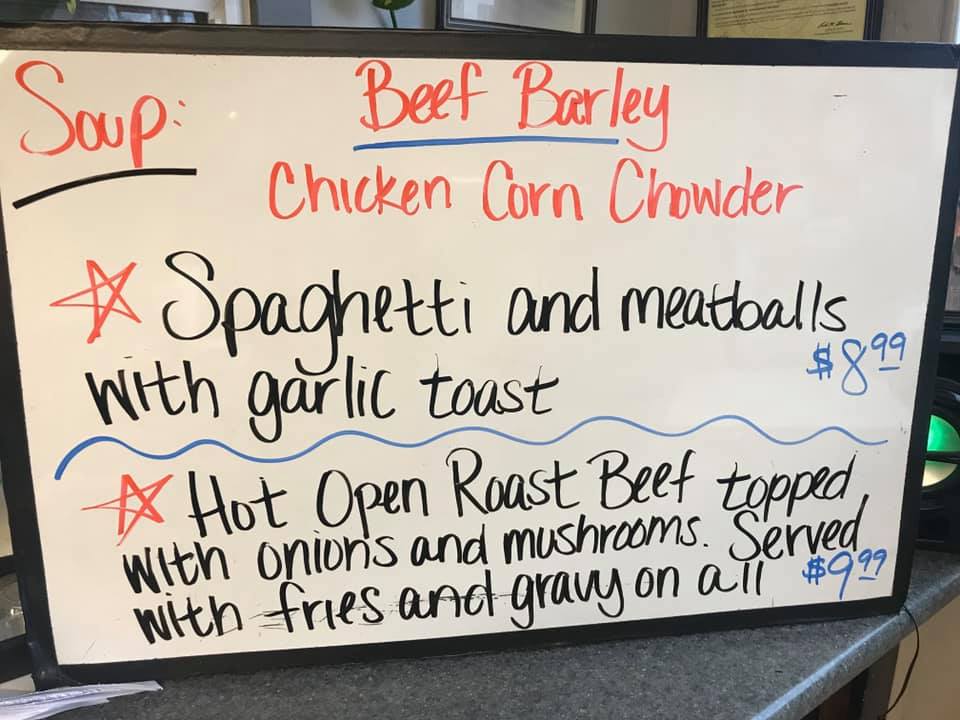 Soup: Beef Barley
Chicken Corn Chowder
Spaghetti and meatballs
$8.99
with garlic toast
Hot Open Roast Beef topped
with onions and mushrooms. Served
with fries and gravy on all $9.99